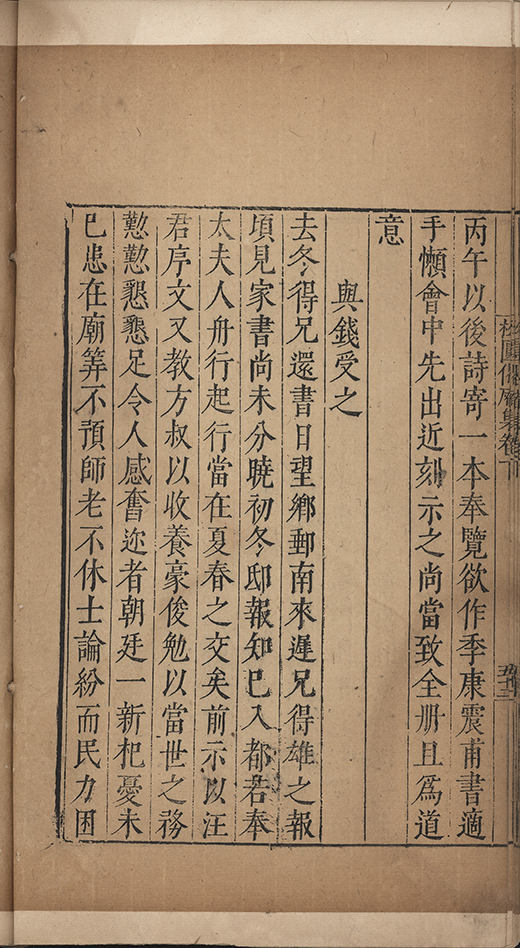 松圓偈庵集卷下
丙午以後詩寄一本奉覽欲作季康震甫書適
手懶會中先出近刻示之尚當致全册且爲道
意
與錢受之
去冬得兄還書日望鄉郵南來遲兄得雄之報
頃見家書尚未分曉初冬邸報知已入都若奉
太夫人舟行起行當在夏春之交矣前示以汪
君序文又教方叔以收養豪俊勉以當世之務
懃懃懇懇足令人感奮迩者朝廷一新杞憂未
已患在廟筭不預師老不休士論紛而民力困